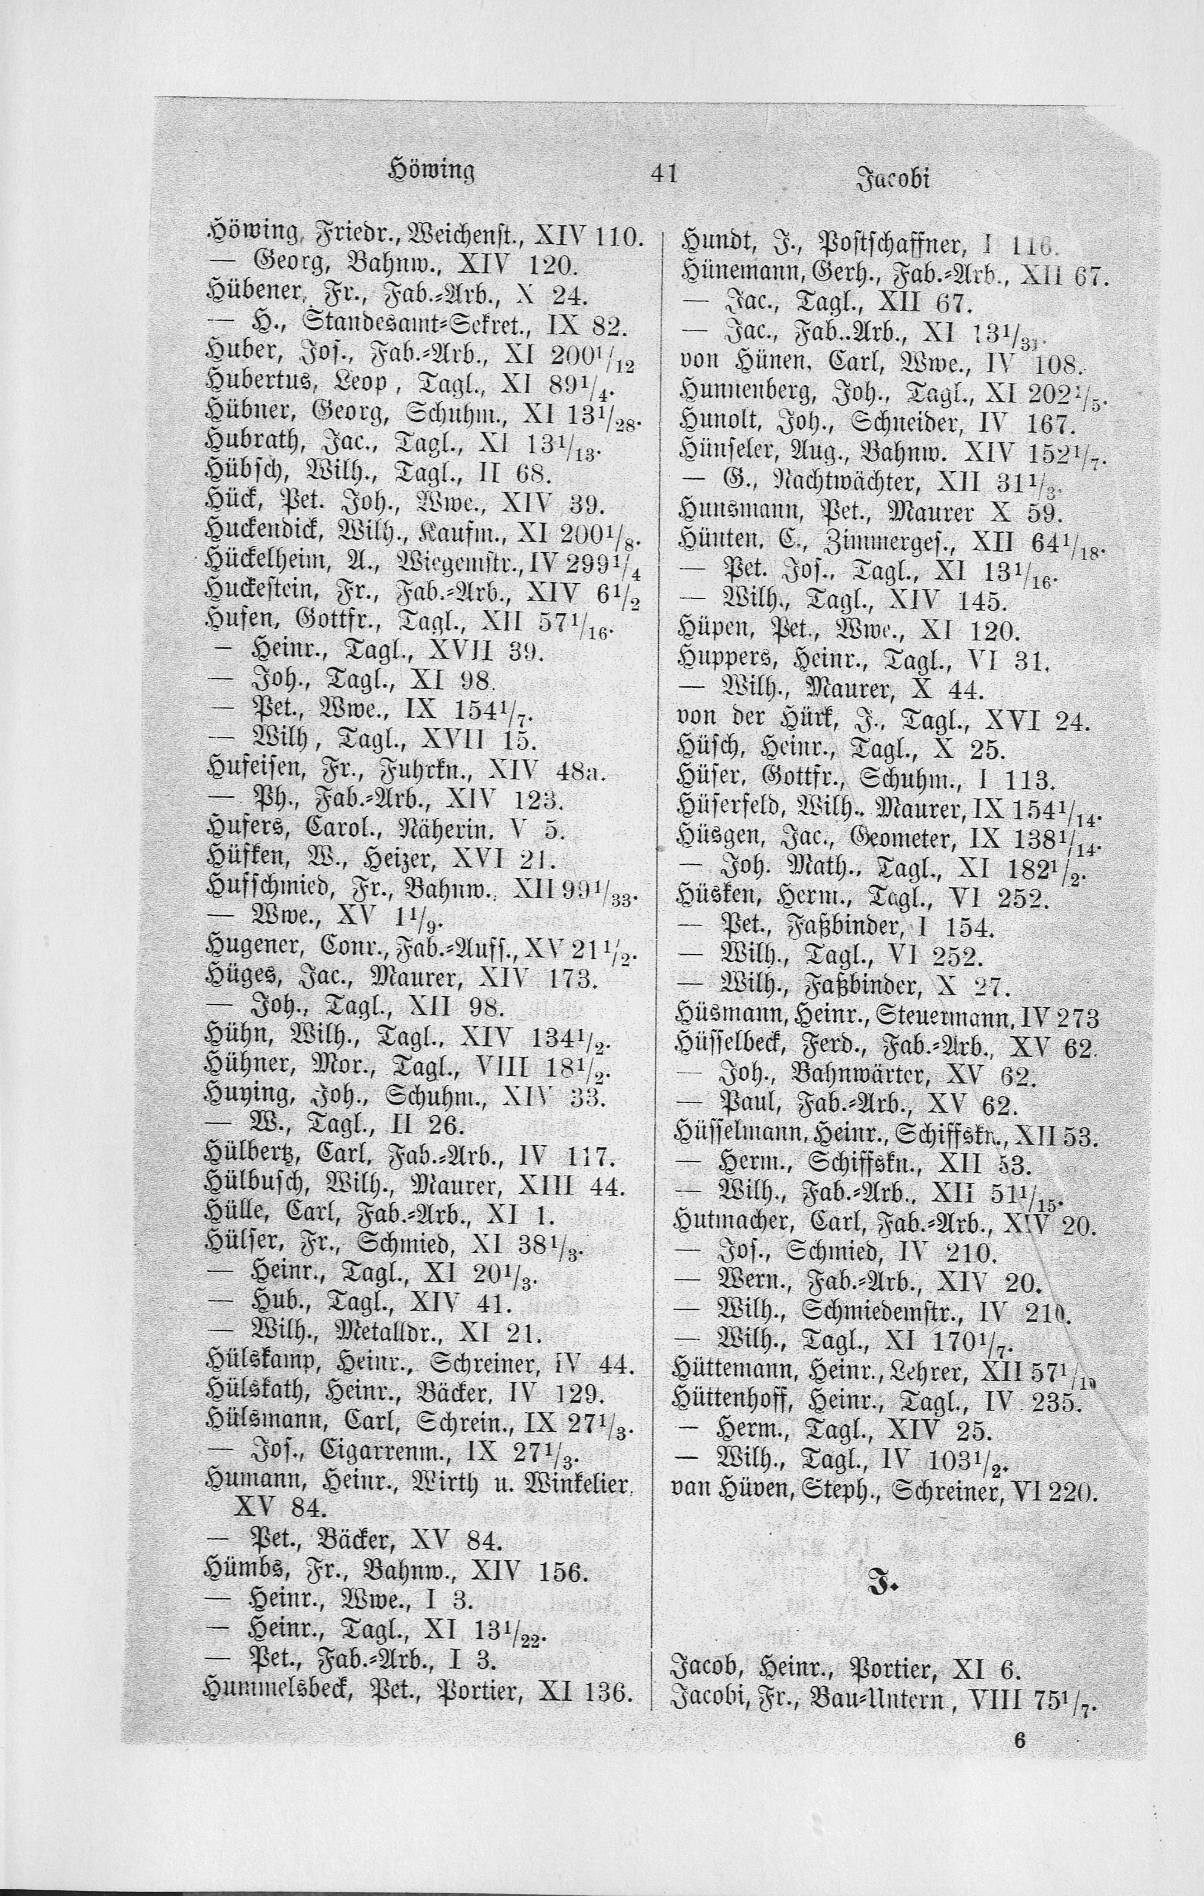 Höwing
41
Jacobi
Höwing, Friedr., Weichenst., XIV 110.
— Georg, Bahnw., XIV 120.
Hübener, Fr., Fab.=Arb., X 24.
— H., Standesamt=Sekret., IX 82.
Huber, Jos., Fab.=Arb., XI 200 1/12
Hubertus, Leop, Tagl., XI 89 1/4.
Hübner, Georg, Schuhm., XI 13 1/28.
Hubrath, Jac., Tagl., XI 13 1/13.
Hübsch, Wilh., Tagl., II 68.
Hück, Pet. Joh., Wwe., XIV 39.
Huckendick, Wilh., Kaufm., XI 200 1/8.
Hückelheim, A., Wiegemstr., IV 299 1/4
Huckestein, Fr., Fab.=Arb., XIV 6 1/2
Hufen, Gottfr., Tagl., XII 57 1/16.
— Heinr., Tagl., XVII 39.
— Joh., Tagl., XI 98.
— Pet., Wwe., IX 154 1/7.
— Wilh, Tagl., XVII 15.
Hufeisen, Fr., Fuhrkn., XIV 48a.
— Ph., Fab.=Arb., XIV 123.
Hufers, Carol., Näherin, V 5.
Hüfken, W., Heizer, XVI 21.
Hufschmied, Fr., Bahnw., XII 99 1/33.
— Wwe., XV 1 1/9.
Hugener, Conr., Fab.=Aufs., XV 21 1/2.
Hüges, Jac., Maurer, XIV 173.
— Joh., Tagl., XII 98.
Hühn, Wilh., Tagl., XIV 134 1/2.
Hühner, Mor., Tagl., VIII 18 1/2.
Huying, Joh., Schuhm., XIV 33.
— W., Tagl., II 26.
Hülbertz, Carl, Fab.=Arb., IV 117.
Hülbusch, Wilh., Maurer, XIII 44.
Hülle, Carl, Fab.=Arb., XI 1.
Hülser, Fr., Schmied, XI 38 1/3.
— Heinr., Tagl., XI 20 1/3.
— Hub., Tagl., XIV 41.
— Wilh., Metalldr., XI 21.
Hülskamp, Heinr., Schreiner, IV 44.
Hülskath, Heinr., Bäcker, IV 129.
Hülsmann, Carl, Schrein., IX 27 1/3.
— Jos., Cigarrenm., IX 27 1/3.
Humann, Heinr., Wirth u. Winkelier,
XV 84.
— Pet., Bäcker, XV 84.
Hümbs, Fr., Bahnw., XIV 156.
— Heinr., Wwe., I 3.
— Heinr., Tagl., XI 13 1/22.
— Pet., Fab.=Arb., I 3.
Hummelsbeck, Pet., Portier, XI 136.
Hundt, J., Postschaffner, I 116.
Hünemann, Gerh., Fab.=Arb., XII 67.
— Jac., Tagl., XII 67.
— Jac., Fab..Arb., XI 13 1/31.
von Hünen, Carl, Wwe., IV 108.
Hunnenberg, Joh., Tagl., XI 202 1/5.
Hunolt, Joh., Schneider, IV 167.
Hünseler, Aug., Bahnw. XIV 152 1/7.
— G., Nachtwächter, XII 31 1/3.
Hunsmann, Pet., Maurer X 59.
Hünten, C., Zimmerges., XII 64 1/18.
— Pet. Jos., Tagl., XI 13 1/16.
— Wilh., Tagl., XIV 145.
Hüpen, Pet., Wwe., XI 120.
Huppers, Heinr., Tagl., VI 31.
— Wilh., Maurer, X 44.
von der Hürk, J., Tagl., XVI 24.
Hüsch, Heinr., Tagl., X 25.
Hüser, Gottfr., Schuhm., I 113.
Hüserfeld, Wilh., Maurer, IX 154 1/14.
Hüsgen, Jac., Geometer, IX 138 1/14.
— Joh. Math., Tagl., XI 182 1/2.
Hüsken, Herm., Tagl., VI 252.
— Pet., Faßbinder, I 154.
— Wilh., Tagl., VI 252.
— Wilh., Faßbinder, X 27.
Hüsmann, Heinr., Steuermann, IV 273
Hüsselbeck, Ferd., Fab.=Arb., XV 62.
— Joh., Bahnwärter, XV 62.
— Paul, Fab.=Arb., XV 62.
Hüsselmann, Heinr., Schiffskn., XII 53.
— Herm., Schiffskn., XII 53.
— Wilh., Fab.=Arb., XII 51 1/15.
Hutmacher, Carl, Fab.=Arb., XIV 20.
— Jos., Schmied, IV 210.
— Wern., Fab.=Arb., XIV 20.
— Wilh., Schmiedemstr., IV 210.
— Wilh., Tagl., XI 170 1/7.
Hüttemann, Heinr., Lehrer, XII 57 1/10
Hüttenhoff, Heinr., Tagl., IV 235.
— Herm., Tagl., XIV 25.
— Wilh., Tagl., IV 103 1/2.
van Hüven, Steph., Schreiner, VI 220.
J.
Jacob, Heinr., Portier, XI 6.
Jacobi, Fr., Bau=Untern, VIII 75 1/7.
6